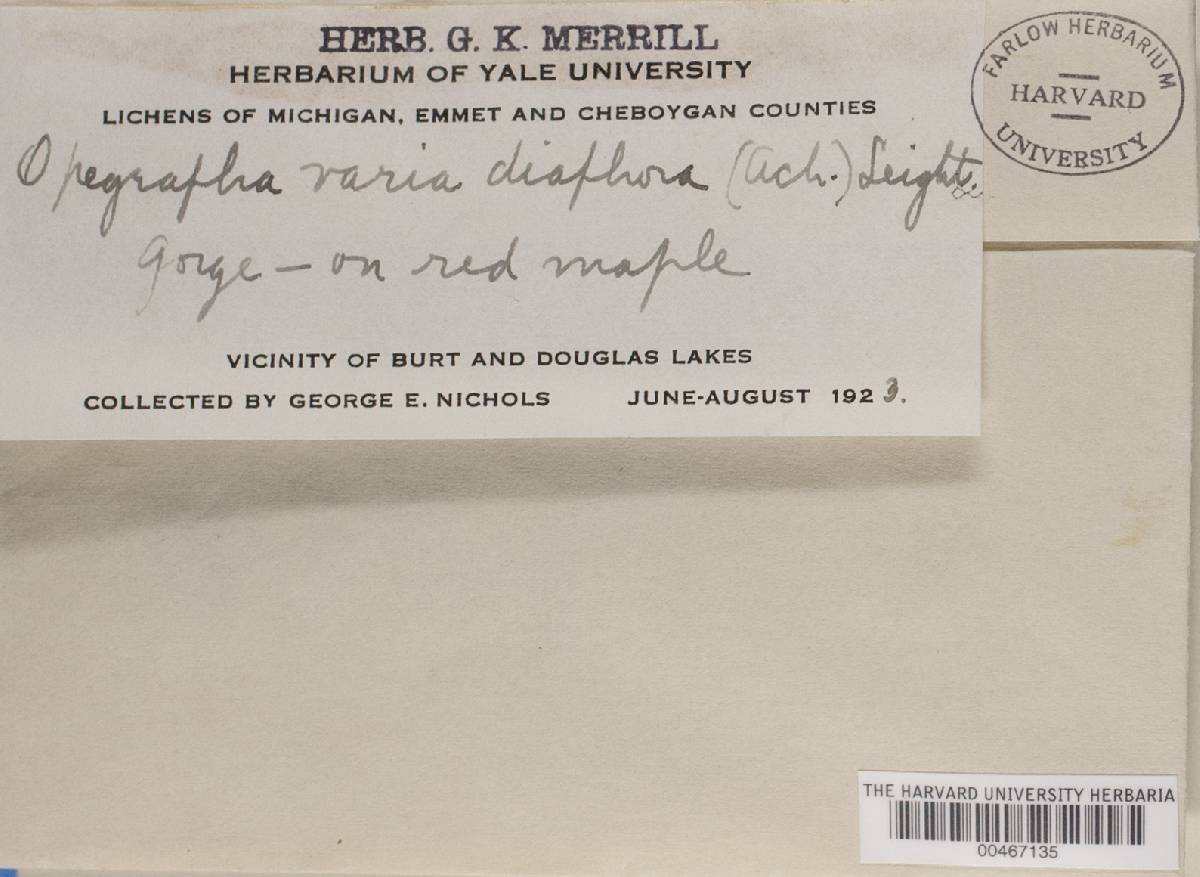 HERB. G. K. MERRILL
HERBARIUM OF YALE UNIVERSITY
LICHENS OF MICHIGAN, EMMET AND CHEBOYGAN COUNTIES
Opegrapha varia diaphora (Ach.) Leight.
Gorge – on red maple
VICINITY OF BURT AND DOUGLAS LAKES
COLLECTED BY GEORGE E. NICHOLS JUNE-AUGUST 1923.
FARLOW HERBARIUM
HARVARD
UNIVERSITY
THE HARVARD UNIVERSITY HERBARIA
00467135